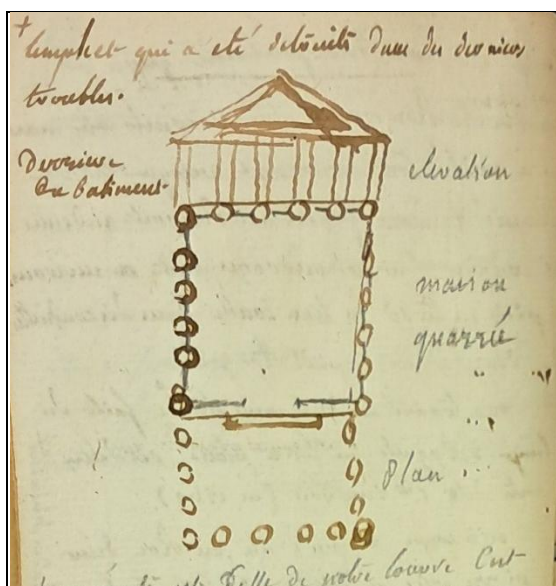 +
qui a été détruits dans des derniers
troubles.
Derriere
Du batiment.
elevation
maison
quarré
" "
"
Plan "
de notre louvre C'est